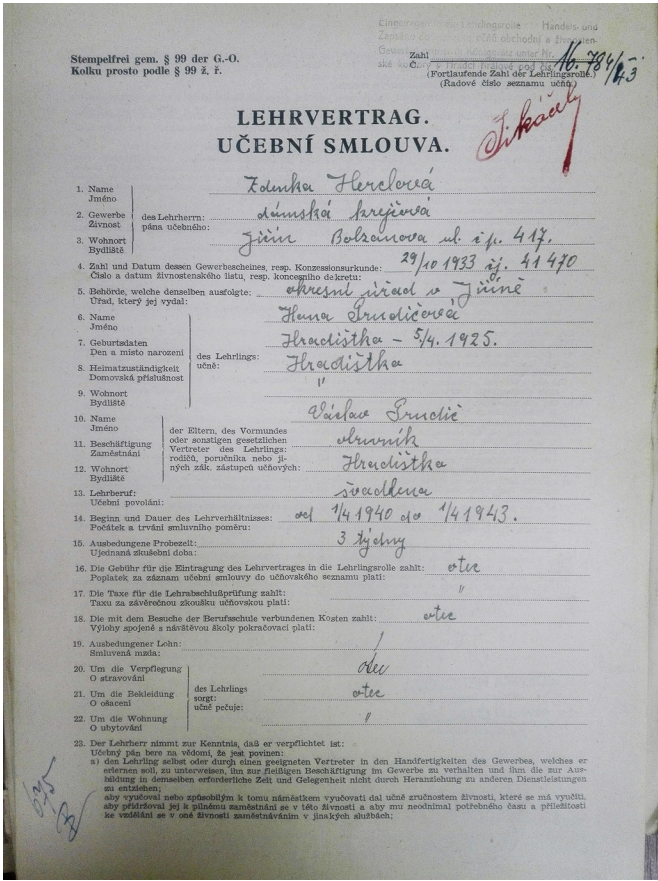 Stempelfrei gem. § 99 der G.-O.
Kolku prosto podle § 99 ž. ř.
Zahl
Č.
16.784/43
(Fortlaufende Zahl der Lehrlingsrolle.)
(Řadové číslo seznamu učňů.)
LEHRVERTRAG.
UČEBNÍ SMLOUVA.
1. Name
Jméno
Zdenka Herclová
2. Gewerbe
Živnost
des Lehrherrn:
pána učebného:
dámská krejčová
3. Wohnort
Bydliště
Jičín Bolzanova ul. č.p. 417.
4. Zahl und Datum dessen Gewerbescheines, resp. Konzessionsurkunde:
Číslo a datum živnostenského listu, resp. koncesního dekretu:
29/10 1933 čj. 41470
5. Behörde, welche denselben ausfolgte:
Úřad, který jej vydal:
okresní úřad v Jičíně
6. Name
Jméno
Hana Šrudičová
7. Geburtsdaten
Den a místo narození
Hradištka – 5/4. 1925.
8. Heimatzuständigkeit
Domovská příslušnost
des Lehrlings:
učně:
Hradištka
9. Wohnort
Bydliště
"
10. Name
Jméno
Václav Šrudič
11. Beschäftigung
Zaměstnání
der Eltern, des Vormundes
oder sonstigen gesetzlichen
Vertreter des Lehrlings:
rodičů, poručníka nebo ji-
ných zák. zástupců učňových:
obuvník
12. Wohnort
Bydliště
Hradištka
13. Lehrberuf:
Učební povolání:
švadlena
14. Beginn und Dauer des Lehrverhältnisses:
Počátek a trvání smluvního poměru:
od 1/4 1940 do 1/4 1943.
15. Ausbedungene Probezeit:
Ujednaná zkušební doba:
3 týdny
16. Die Gebühr für die Eintragung des Lehrvertrages in die Lehrlingsrolle zahlt:
Poplatek za záznam učební smlouvy do učňovského seznamu platí:
otec
17. Die Taxe für die Lehrabschlußprüfung zahlt:
Taxu za závěrečnou zkoušku učňovskou platí:
"
18. Die mit dem Besuche der Berufsschule verbundenen Kosten zahlt:
Výlohy spojené s návštěvou školy pokračovací platí:
otec
19. Ausbedungener Lohn:
Smluvená mzda:
/
20. Um die Verpflegung
O stravování
otec
21. Um die Bekleidung
O ošacení
des Lehrlings
sorgt:
učně pečuje:
otec
22. Um die Wohnung
O ubytování
"
23. Der Lehrherr nimmt zur Kenntnis, daß er verpflichtet ist:
Učebný pán bere na vědomí, že jest povinen:
a) den Lehrling selbst oder durch einen geeigneten Vertreter in den Handfertigkeiten des Gewerbes, welches er
erlernen soll, zu unterweisen, ihn zur fleißigen Beschäftigung im Gewerbe zu verhalten und ihm die zur Aus-
bildung in demselben erforderliche Zeit und Gelegenheit nicht durch Heranziehung zu anderen Dienstleistungen
zu entziehen;
aby vyučoval nebo způsobilým k tomu náměstkem vyučovati dal učně zručnostem živnosti, které se má vyučiti,
aby přidržoval jej k pilnému zaměstnání se v této živnosti a aby mu neodnímal potřebného času a příležitosti
ke vzdělání se v oné živnosti zaměstnáváním v jinakých službách;